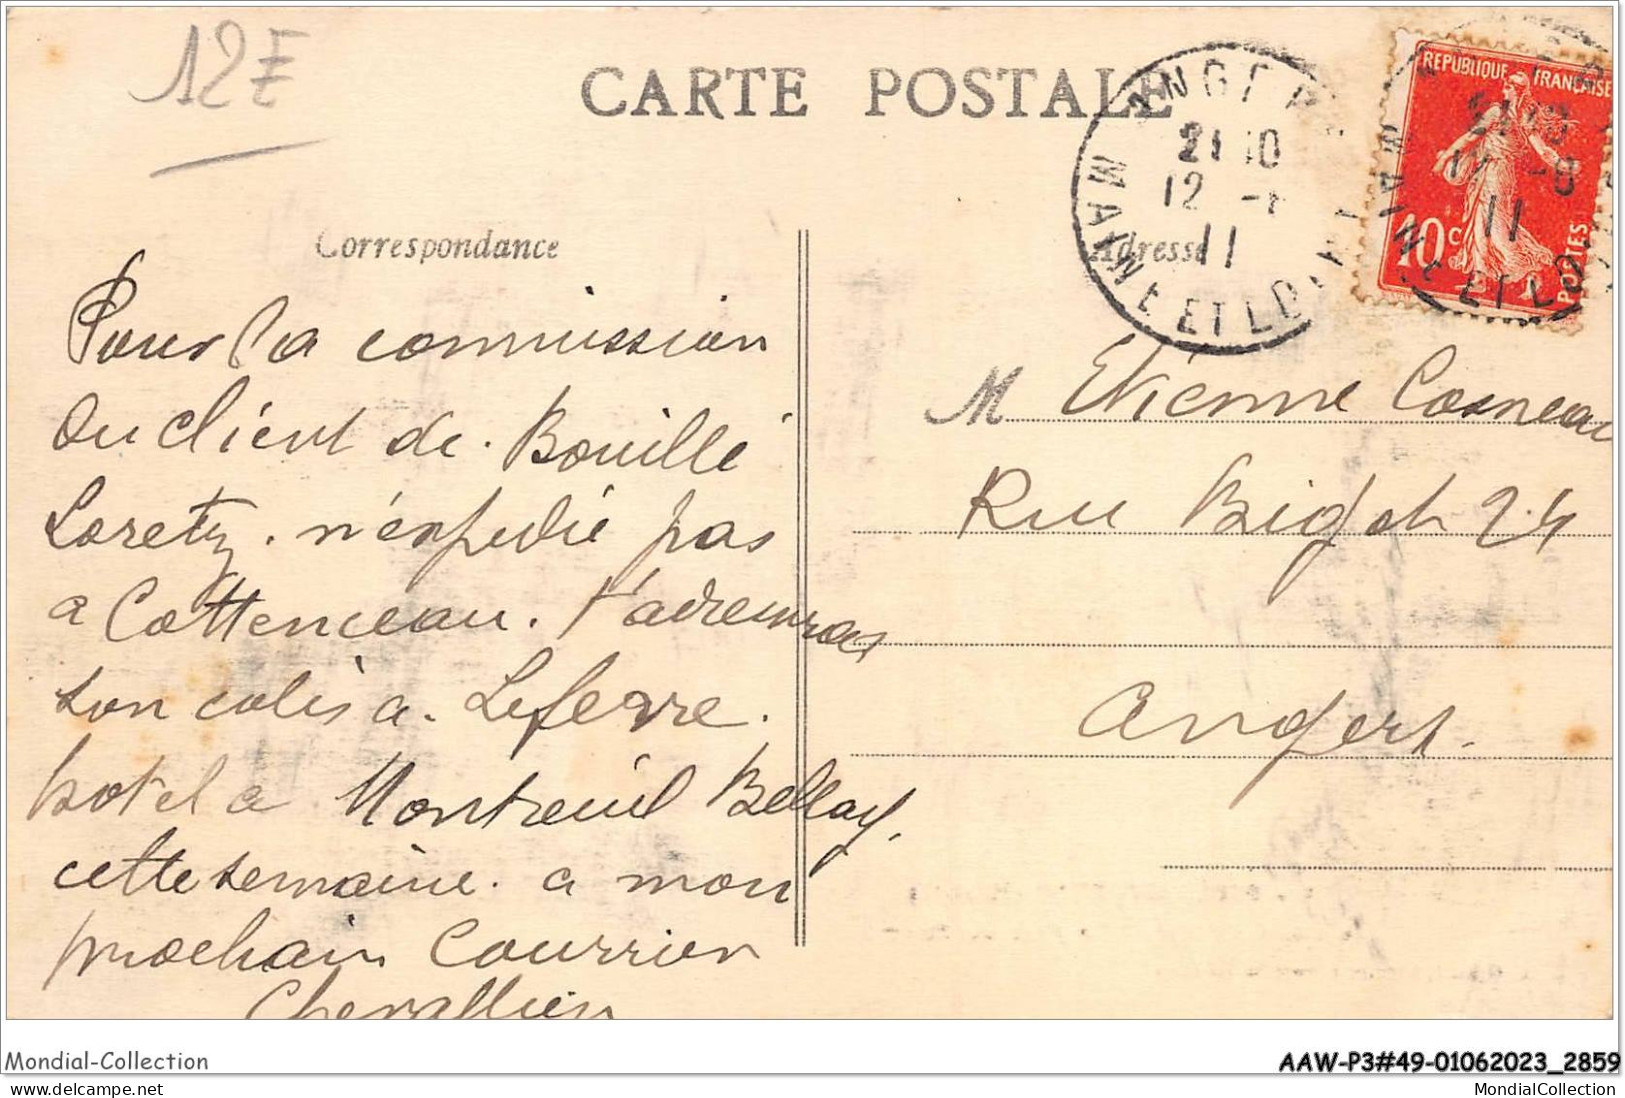 12E
CARTE POSTALE
Correspondance
Adresse
ANGERS
21 10
12 -
11
MAINE ET LOIRE
REPUBLIQUE FRANÇAISE
10c
POSTES
11
MAINE ET LO
Pour la commission
du client de. Bouillé
Loretz. n'expedié pas
a Cottenceau. t'adresseras
son colis a. Lefevre.
hotel a Montreuil Bellay.
cette semaine. a mon
prochain Courrier
Chevallier
M Etienne Cosneau
Rue Bigot 24
Angers.
Mondial-Collection
AAW-P3#49-01062023_2859
www.delcampe.net
MondialCollection